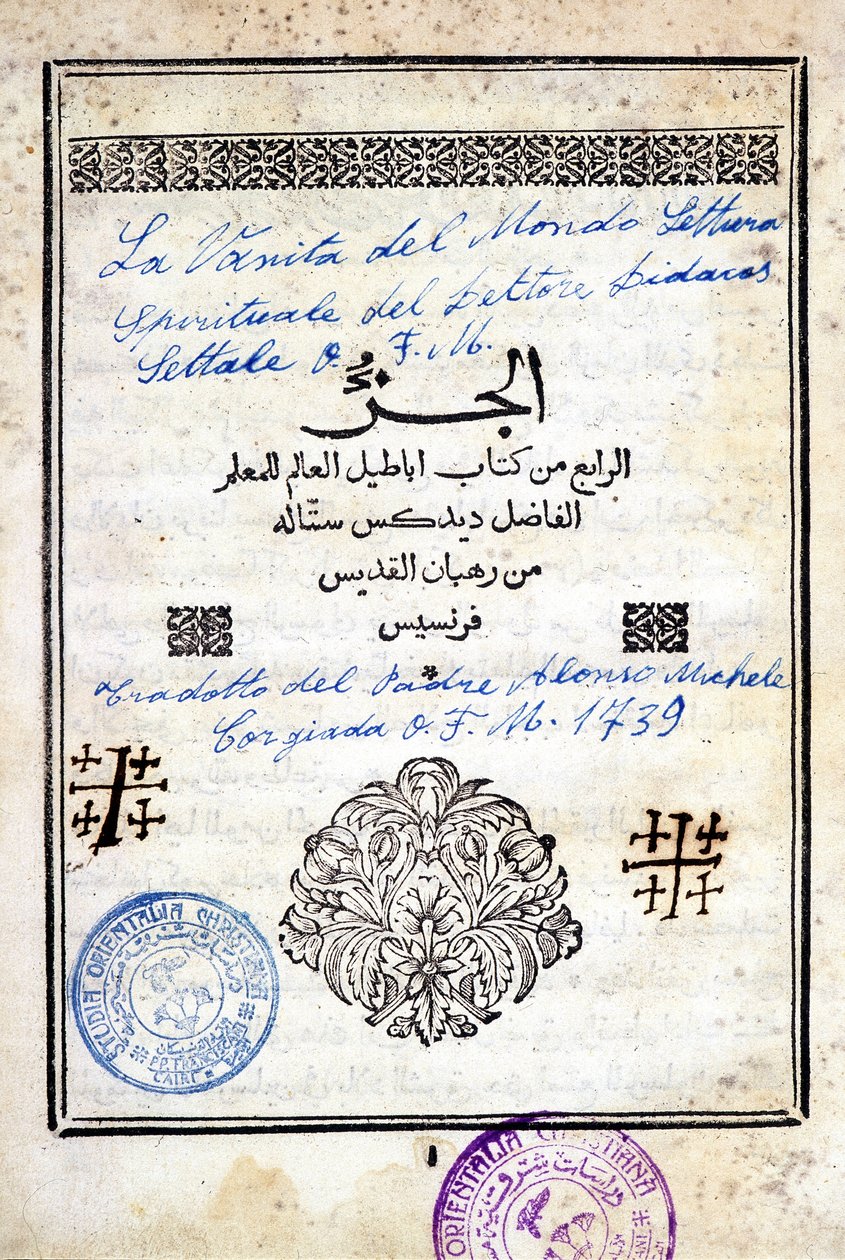 La Vanita del Mondo Lettura
Spirituale del Lettore Didacos
Settale O. F. M.
الجزُ
الرابع من كتاب اباطيل العالم للمعلم
الفاضل ديدكس ستّاله
من رهبان القديس
فرنسيس
*
Tradotto del Padre Alonso Michele
Corgiada O. F. M. 1739
STUDIA ORIENTALIA CHRISTIANA
دراسات شرقية مسيحية
P.P. FRANCESCANI
CAIRE
1
ORIENTALIA CHRISTIANA
دراسات شرقية